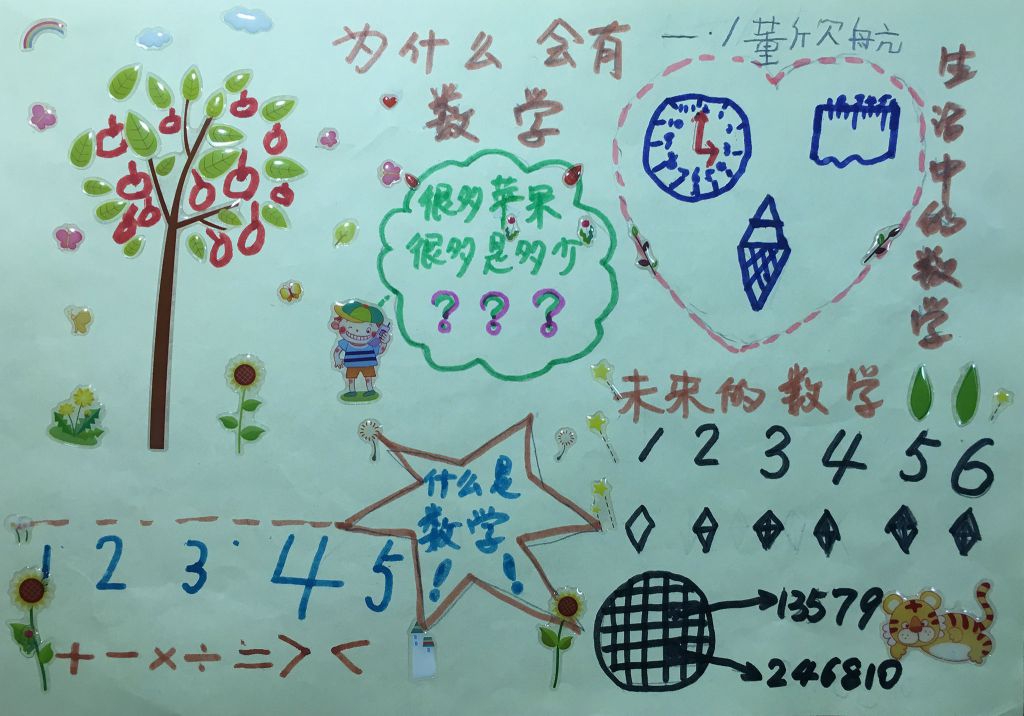 为什么会有
数学
一.1董欣航
生活中的数学
很多苹果
很多是多少
? ? ?
未来的数学
1 2 3 4 5 6
什么是
数学
! !
1 2 3 4 5
+ - × ÷ = > <
13579
246810